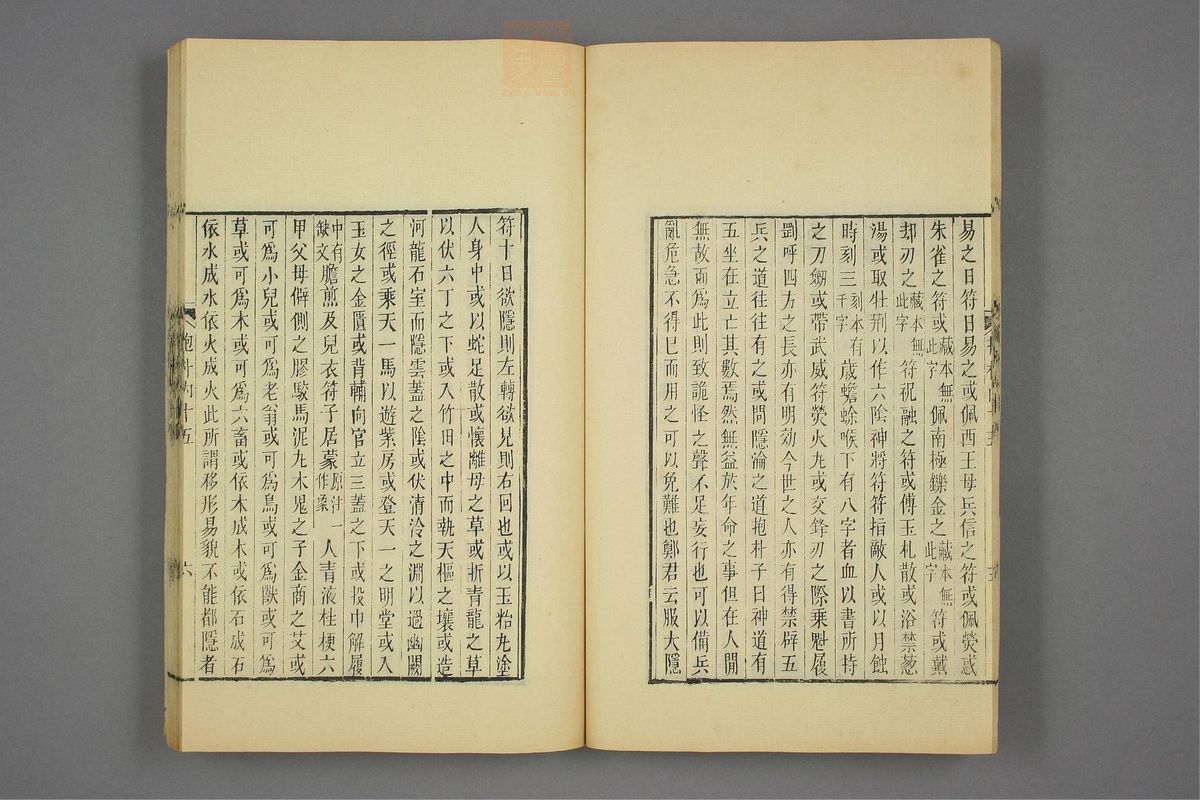 易之日符日易之或佩西王母兵信之符或佩熒惑
朱雀之符或藏本無此字佩南極鑠金之藏本無此字符或戴
却刃之藏本無此字符祝融之符或傅玉札散或浴禁葱
湯或取牡荆以作六陰神將符符指敵人或以月蝕
時刻三刻本有千字歲蟾蜍喉下有八字者血以書所持
之刀劒或帶武威符熒火丸或交鋒刃之際乗魁履
罡呼四方之長亦有明効今世之人亦有得禁辟五
兵之道往往有之或問隱淪之道抱朴子曰神道有
五坐在立亡其數焉然無益於年命之事但在人閒
無故而爲此則致詭怪之聲不足妄行也可以備兵
亂危急不得已而用之可以免難也鄭君云服大隱
符十日欲隱則左轉欲見則右回也或以玉粭丸塗
人身中或以蛇足散或懷離母之草或折青龍之草
以伏六丁之下或入竹田之中而執天樞之壤或造
河龍石室而隱雲蓋之陰或伏清泠之淵以過幽闕
之徑或乗天一馬以遊紫房或登天一之明堂或入
玉女之金匱或背輔向官立三蓋之下或投巾解履
中有缺文膽煎及兒衣符子居蒙原注一作象人青液桂梗六
甲父母僻側之膠駮馬泥丸木鬼之子金商之艾或
可爲小兒或可爲老翁或可爲鳥或可爲獸或可爲
草或可爲木或可爲六畜或依木成木或依石成石
依水成水依火成火此所謂移形易貌不能都隱者
抱朴内十五
六